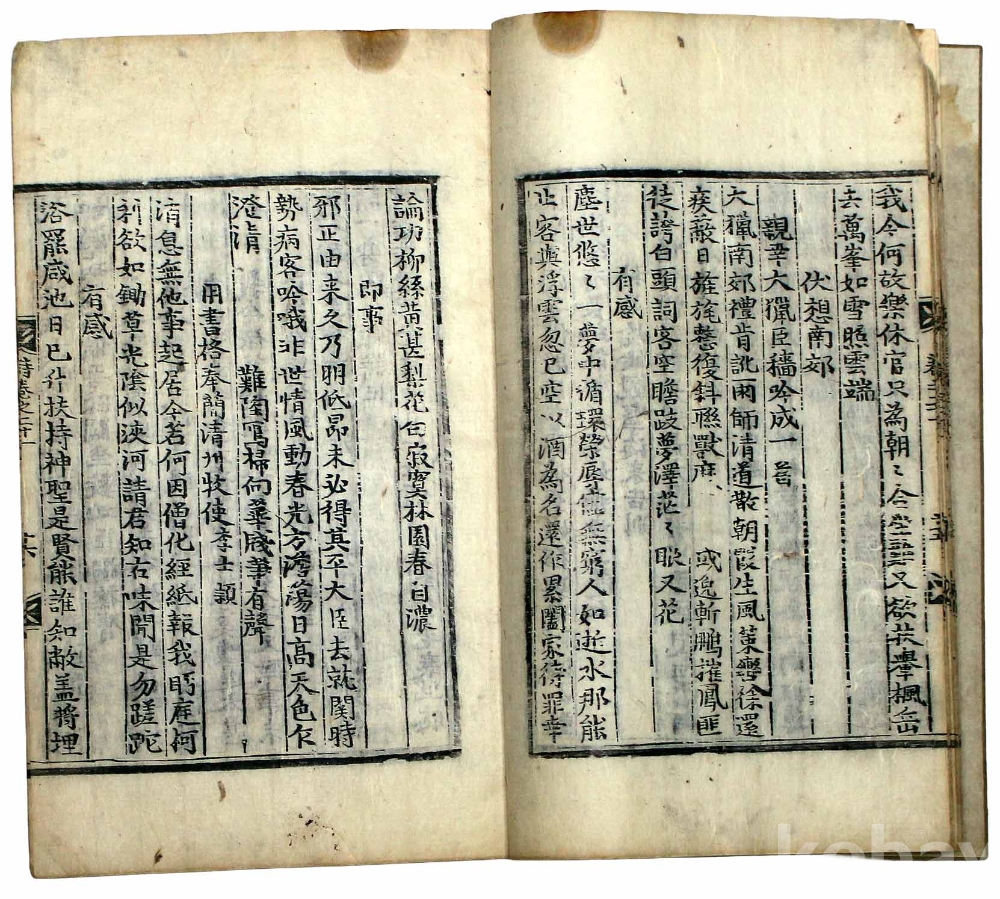 我今何故樂休官只為朝〻合坐又欲共攀楓岳
去萬峯如雪照雲端
伏想南郊
親幸大獵臣穡吟成一首
大獵南郊禮肯訛雨師清道散朝霞生風葉轡徐還
疾蔽日旌旄整復斜聯獸麻或逸斬鵬摧鳳匪
徒誇白頭詞客空瞻跂夢澤茫〻眼又花
有感
塵世悠〻一夢中循環榮辱無窮人如逝水那能
止客與浮雲忽已空以酒為名還作累闔家待罪幸
論功柳絲黃甚梨花白寂寞林園春自濃
即事
邪正由来久乃明低昂未必得其平大臣去就関時
勢病客吟哦非世情風動春光方澹蕩日高天色乍
澄清難陶寫掃向華牋筆有聲
用書格奉簡清州牧使李士穎
消息無他事起居今若何因僧化經紙報我眄庭柯
利欲如鋤草光陰似決河請君知右味閒是勿蹉跎
有感
浴罷咸池日已升扶持神聖是賢能誰知敝盖将埋
詩卷之二十一
十六